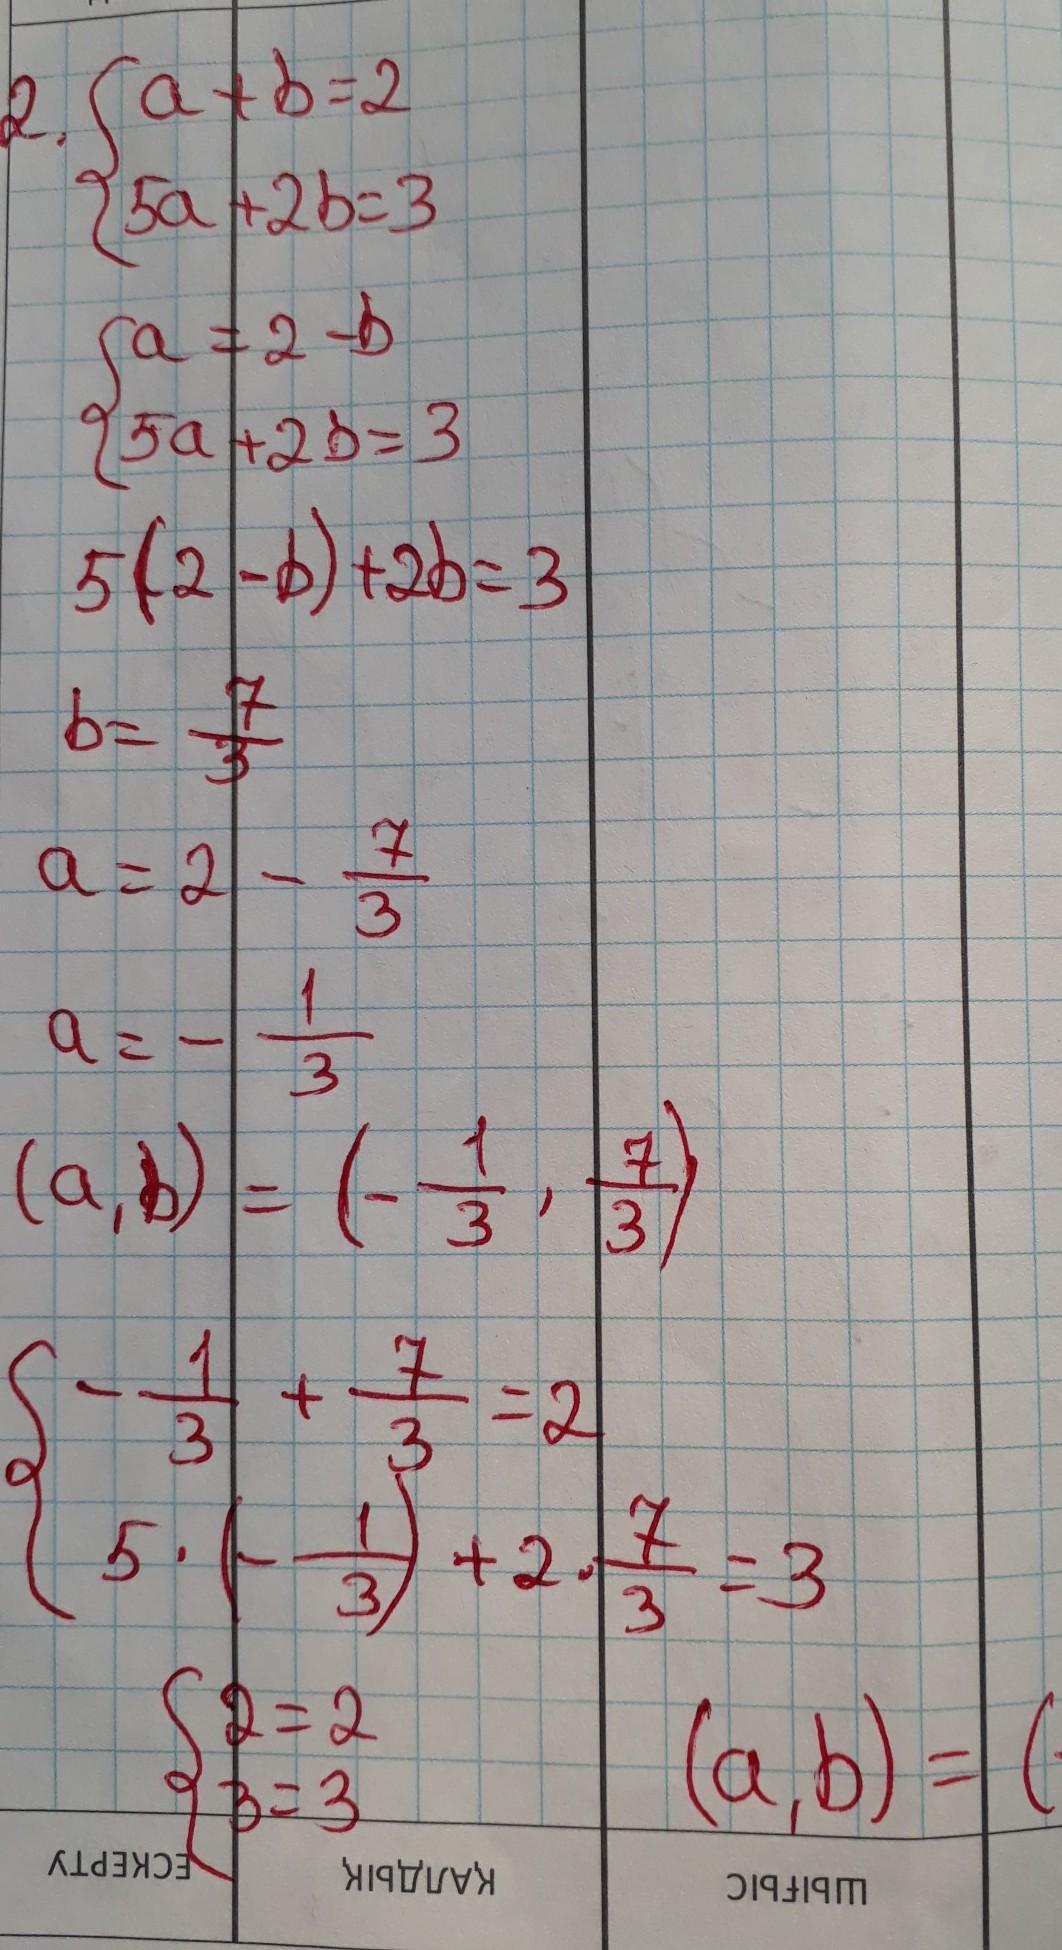 2. { a + b = 2
5a + 2b = 3
{ a = 2 - b
5a + 2b = 3
5(2 - b) + 2b = 3
b = 7/3
a = 2 - 7/3
a = - 1/3
(a, b) = (- 1/3, 7/3)
{ - 1/3 + 7/3 = 2
5 · (- 1/3) + 2 · 7/3 = 3
{ 2 = 2
3 = 3
(a, b) = (-
ЕСКЕРТУ
ҚАЛДЫҚ
ШЫҒЫС